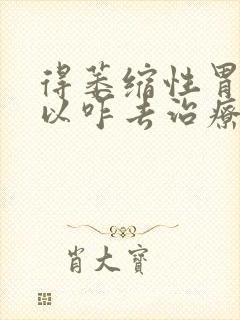 得萎缩性胃
以咋去治療
肖大寶